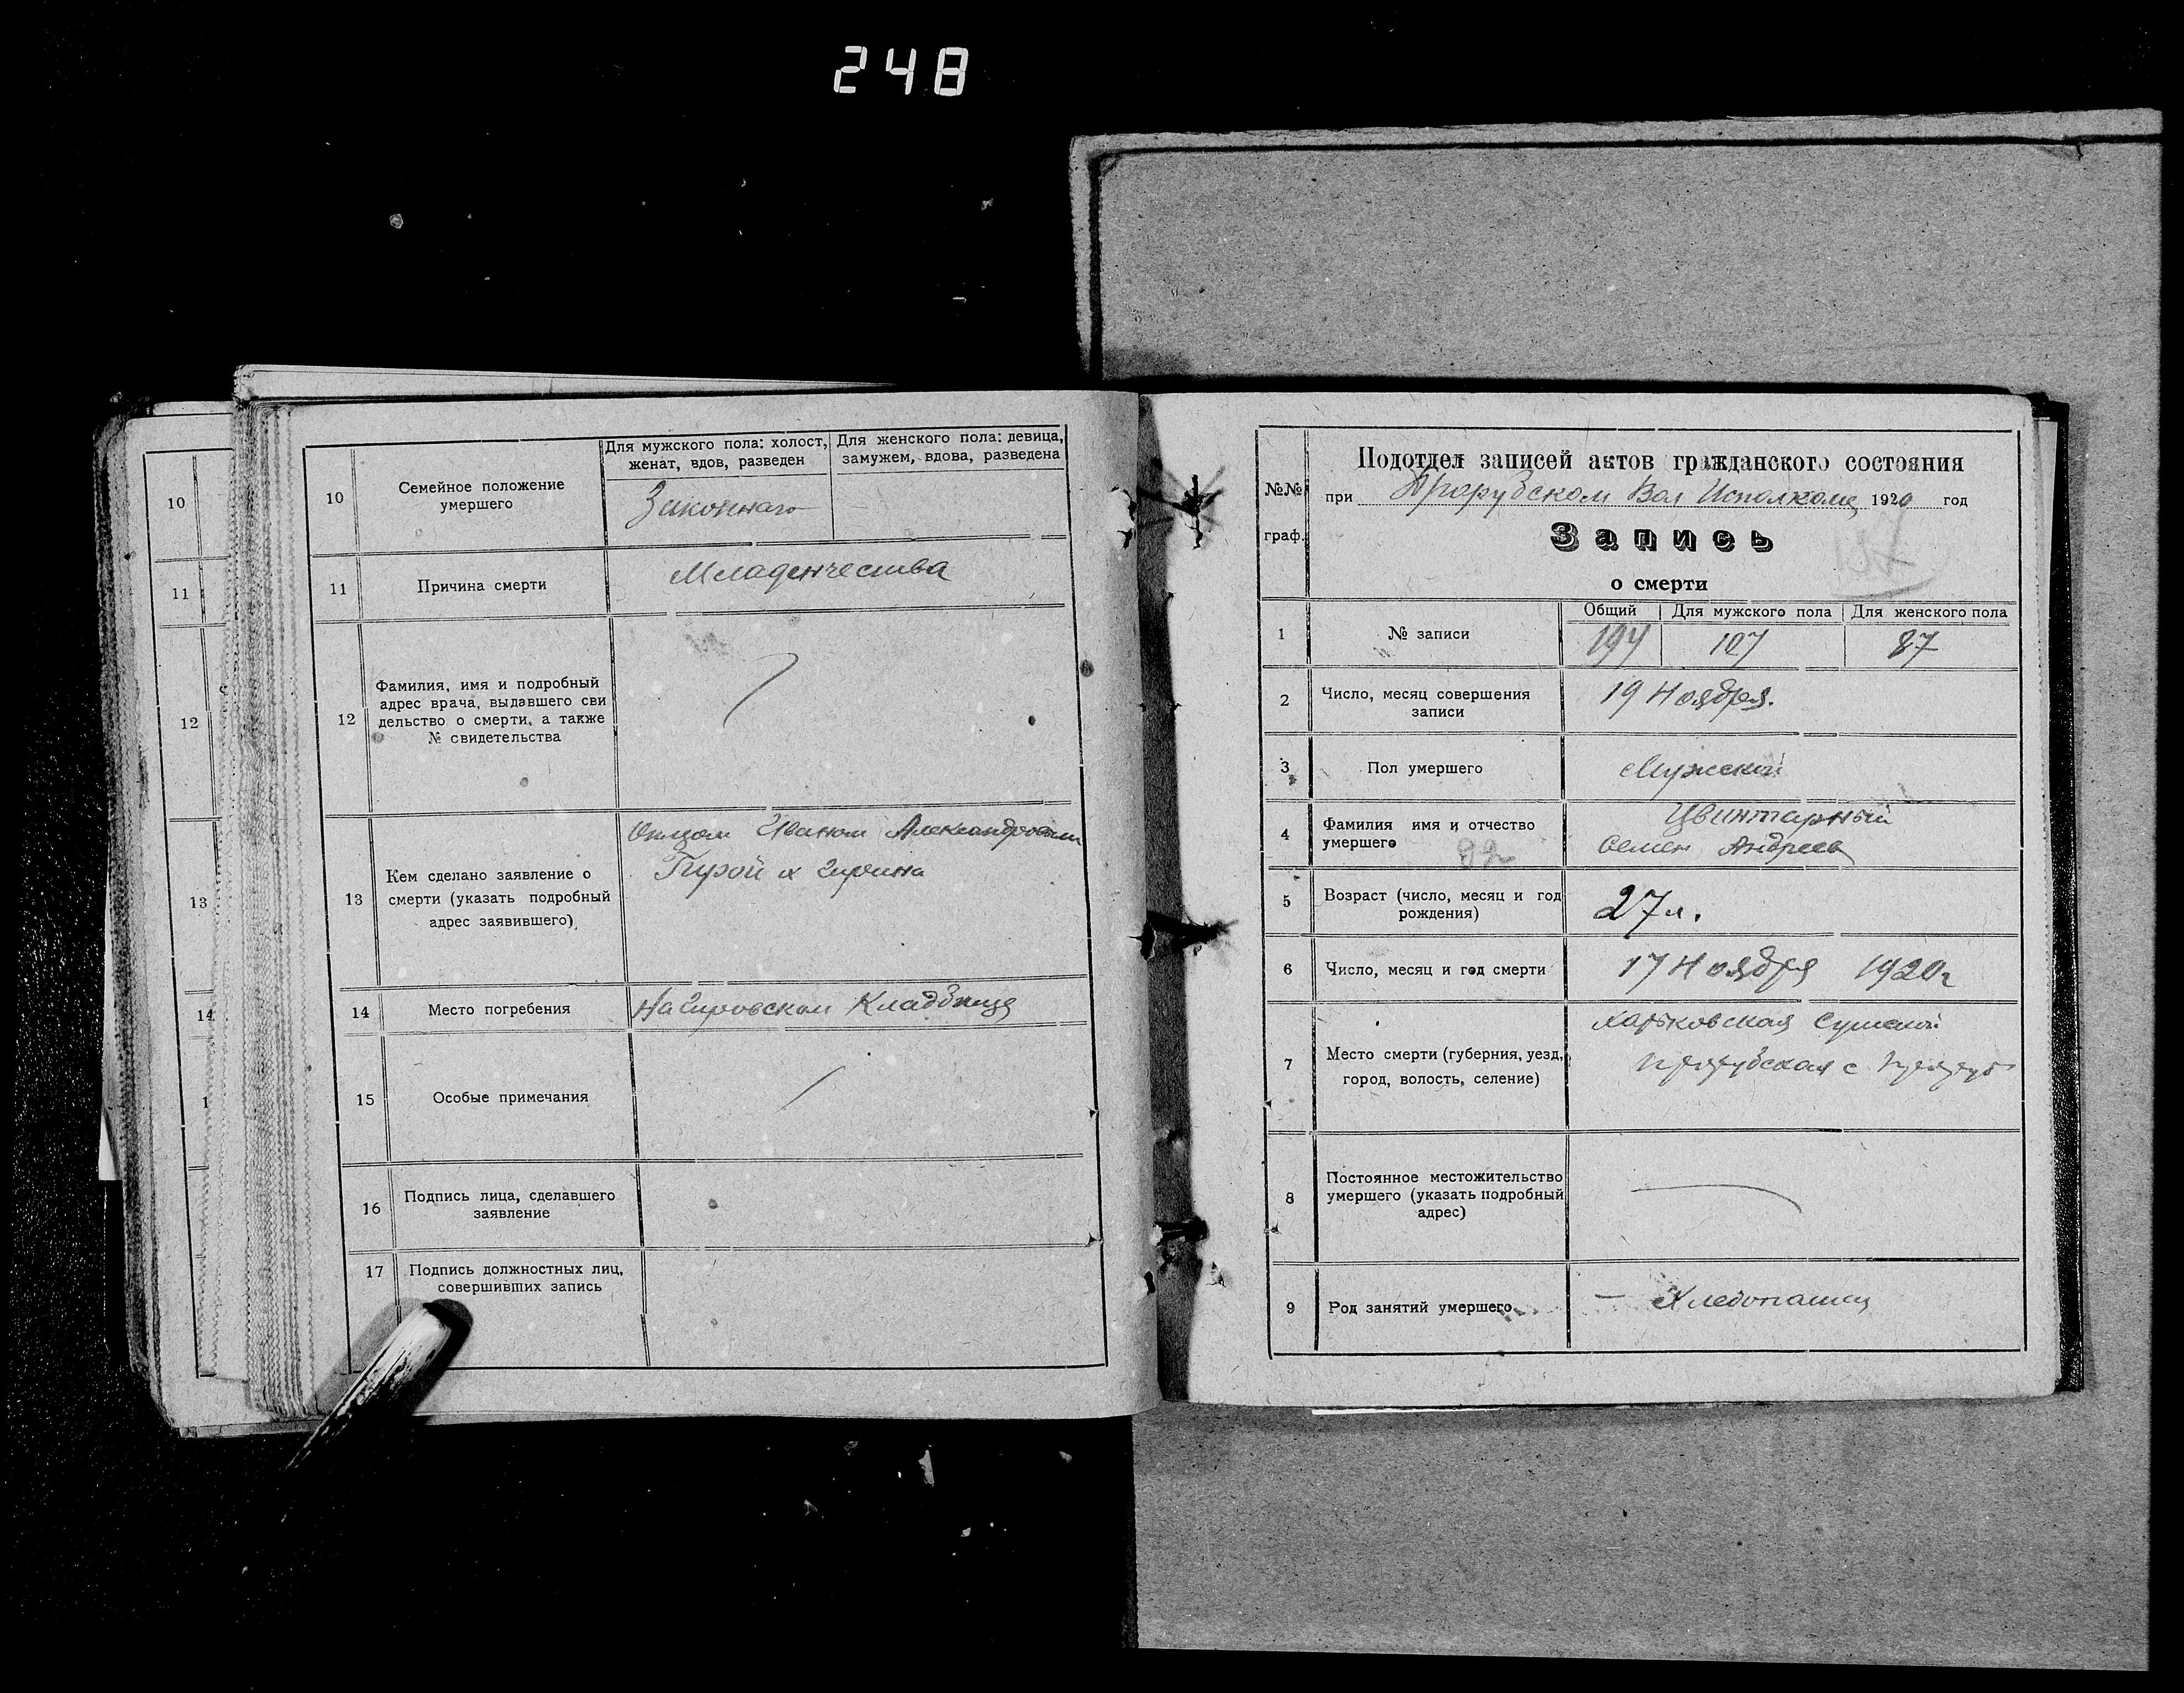 248
10
11
12
13
14
10
Семейное положение
умершего
Для мужского пола: холост,
женат, вдов, разведен
Для женского пола: девица,
замужем, вдова, разведена
Законнаго
11
Причина смерти
Младенчества
12
Фамилия, имя и подробный
адрес врача, выдавшего сви
дельство о смерти, а также
№ свидетельства
13
Кем сделано заявление о
смерти (указать подробный
адрес заявившего)
Отцом Иваном Александровым
14
Место погребения
Кладбище
15
Особые примечания
16
Подпись лица, сделавшего
заявление
17
Подпись должностных лиц,
совершивших запись
№№
граф.
Подотдел записей актов гражданского состояния
при Прорубском Вол Исполкоме 1920 год
Запись
о смерти
187
1
№ записи
Общий
Для мужского пола
Для женского пола
194
107
87
2
Число, месяц совершения
записи
19 Ноября.
3
Пол умершего
Мужской
4
Фамилия имя и отчество
умершего
Цвинтарный
Семен Андреев
5
Возраст (число, месяц и год
рождения)
27 л.
6
Число, месяц и год смерти
17 Ноября 1920 г
7
Место смерти (губерния, уезд,
город, волость, селение)
Харьковская Сумской
Прорубская с Проруб
8
Постоянное местожительство
умершего (указать подробный
адрес)
9
Род занятий умершего
Хлебопашец